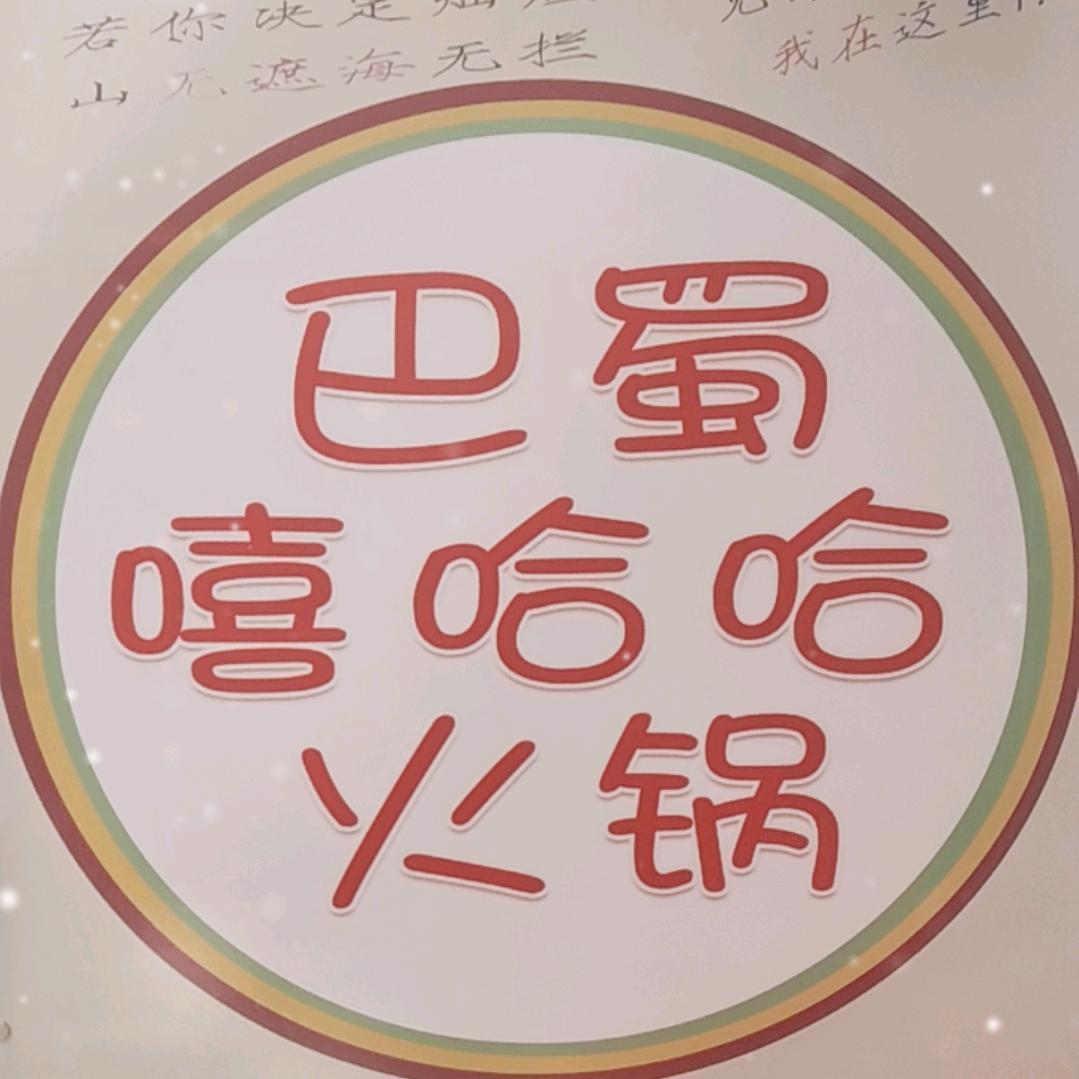 若你决定灿烂
山无遮海无拦
我在这里
巴蜀
嘻哈哈
火锅